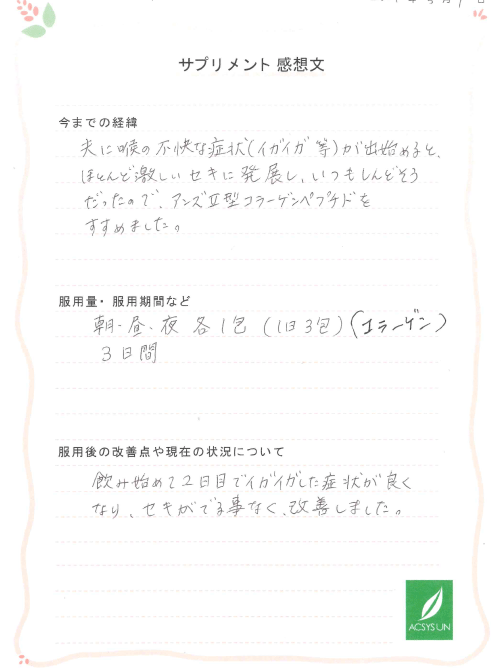 サプリメント 感想文
今までの経緯
夫に喉の不快な症状(イガイガ 等)が出始めると、
ほとんど激しいセキに発展し、いつもしんどそう
だったので、アンズⅡ型コラーゲンペプチドを
すすめました。
服用量・服用期間など
朝・昼・夜 各1包 (1日3包)(コラーゲン)
3日間
服用後の改善点や現在の状況について
飲み始めて2日目でイガイガした症状が良く
なり、セキがでる事なく、改善しました。
ACSYSUN